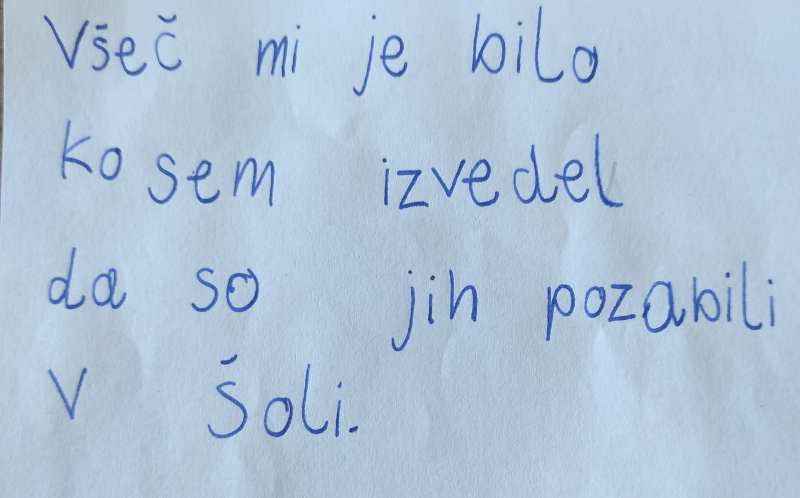 Všeč mi je bilo
ko sem izvedel
da so jih pozabili
v šoli.